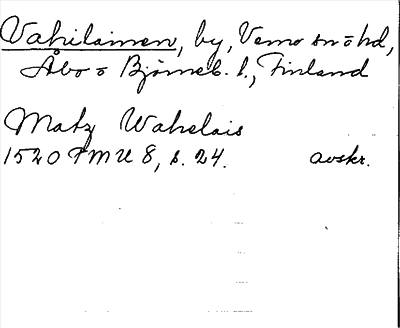 Vahilainen, by, Vemo sn o hd,
Åbo o Björneb. l., Finland
Matz Wahelais
1520 FMU 8, s. 24. avskr.